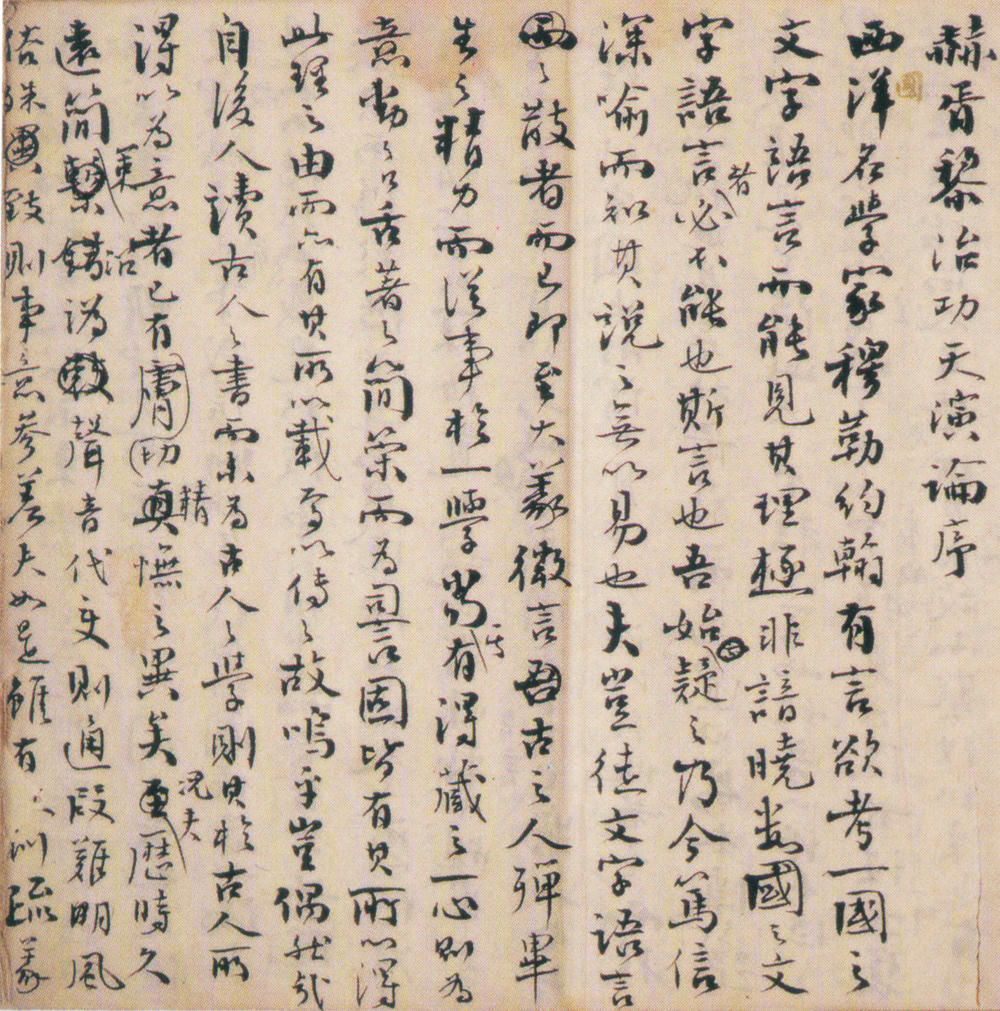 赫胥黎治功天演論序
西洋名學家穆勒約翰有言欲考一國之
文字語言而能見其理極非諳曉數國之文
字語言者必不能也斯言也吾始疑之乃今篤信
深喻而知其說之無以易也夫豈徒文字語言
之散者而已即至大義微言吾古之人殫畢
生之精力而從事於一學當其有得藏之一心則為
意動之口舌著之簡策而為詞言固皆有其所以得
此理之由而亦有其所以載焉以傳之故嗚乎豈偶然哉
自後人讀古人之書而未為古人之學則其於古人所
得以為意者已有膚切精真憮之異矣況夫歷時久
遠簡策沿錯譌聲音代變則通叚難明風
俗殊致則事意參差夫如是雖有訓疏義